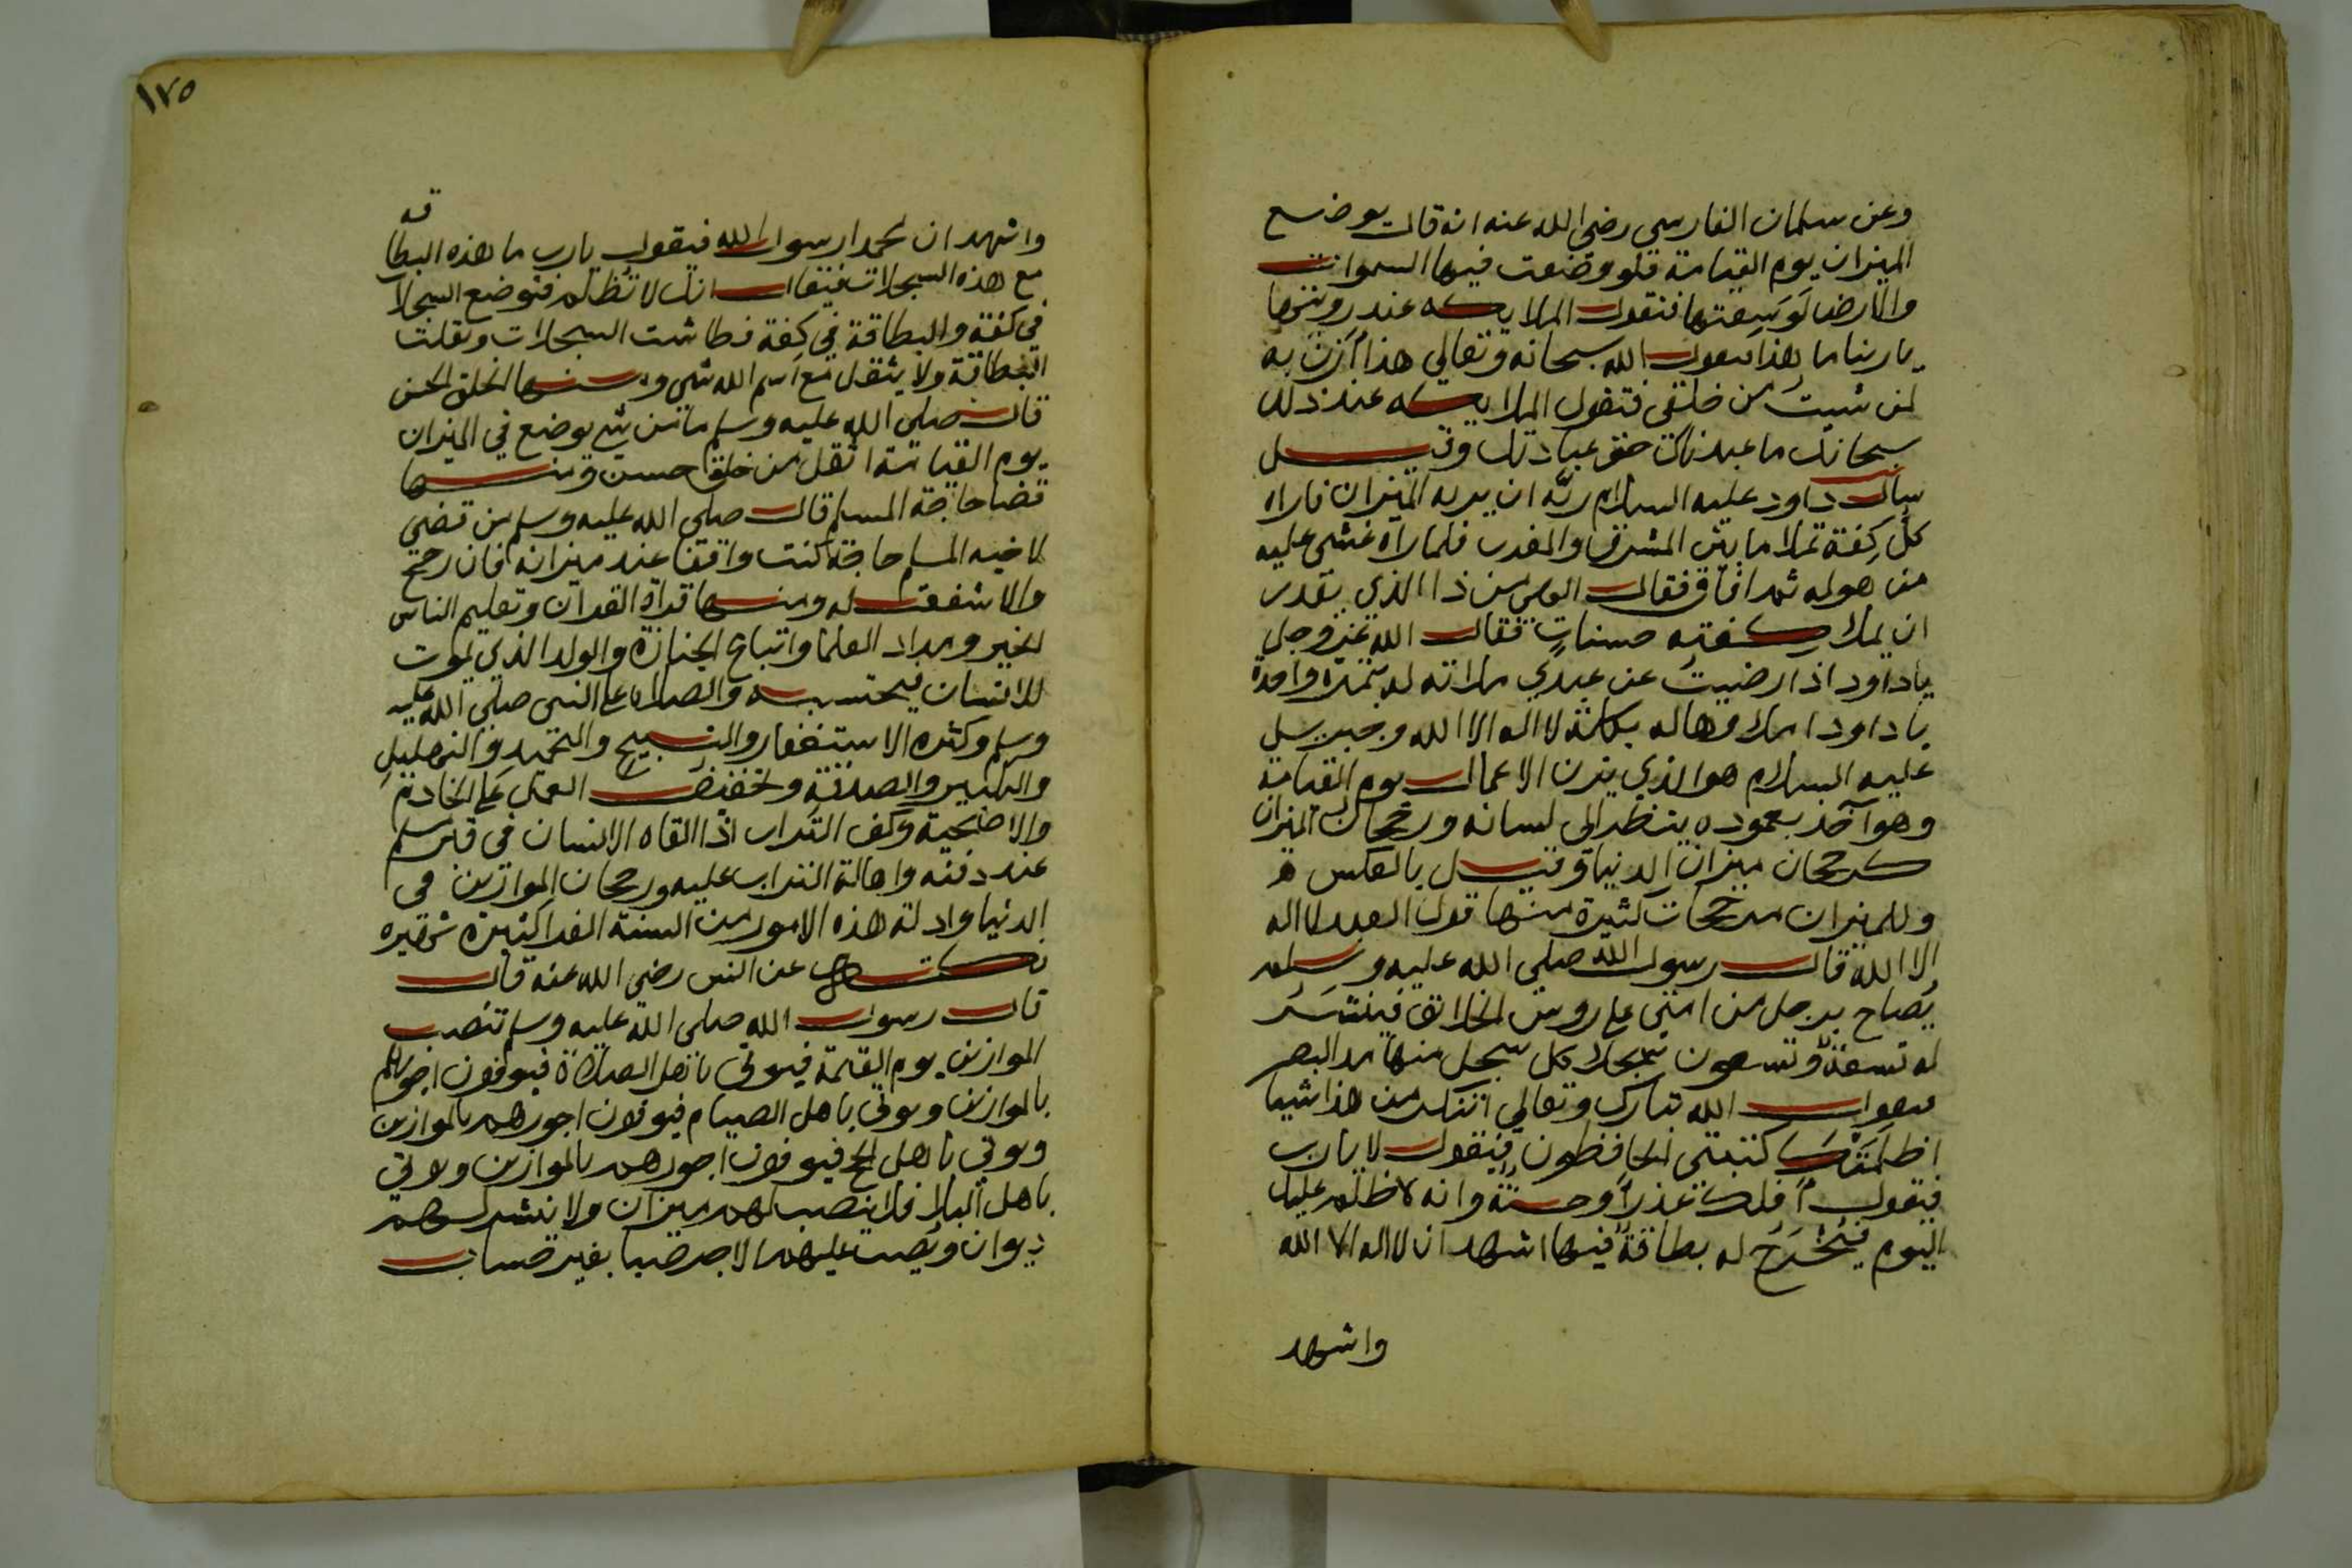 وعن سلمان الفارسي رضي الله عنه انه قال يوضع
الميزان يوم القيامة فلو وضعت فيها السموات
والارض لوسعتها فتقول الملايكه عند رويتها
ياربنا ما هذا فيقول الله سبحانه وتعالي هذا ازن به
لمن شيت من خلقي فتقول الملايكه عند ذلك
سبحانك ما عبدناك حق عبادتك وقيل
سال داود عليه السلام ربه ان يريه الميزان فاراه
كل كفة تملا ما بين المشرق والمغرب فلما رآه غشي عليه
من هوله ثم افاق فقال الهي من ذا الذي يقدر
ان يملا كفته حسنات فقال الله عز وجل
ياداود اذا رضيت عن عبدي ملاته له بتمرة واحدة
ياداود املاوهاله بكلمة لا اله الا الله وجبريل
عليه السلام هو الذي يزن الاعمال يوم القيامة
وهو آخذ بعموده ينظر الي لسانه ورجحان الميزان
كرجحان ميزان الدنيا وقيل بالعكس
وللميزان مرجحات كثيرة منها قول العبد لا اله
الا الله قال رسول الله صلى الله عليه وسلم
يُصاح برجل من امتي علي روس الخلايق فينشر
له تسعة وتسعون سجلا كل سجل منها مد البصر
فيقول الله تبارك وتعالي اتنكر من هذا شيا
اظلمتك كتبتي الحافظون فيقول لا يارب
فيقول افلك عذر او حسنة وانه لا ظلم عليك
اليوم فيُخرج له بطاقة فيها اشهد ان لا اله الا الله
واشهد
١٧٥
واشهد ان محمدا رسول الله فيقول يارب ما هذه البطاقه
مع هذه السجلات فيقال انك لا تُظلم فتوضع السجلات
في كفة والبطاقة في كفة فطاشت السجلات وثقلت
البطاقة ولا يثقل مع اسم الله شي ومنها الخلق الحسن
قال صلى الله عليه وسلم ما من شي يوضع في الميزان
يوم القيامة اثقل من خلق حسن ومنها
قضا حاجة المسلم قال صلى الله عليه وسلم من قضي
لاخيه المسلم حاجة كنت واقفا عند ميزانه فان رجح
والا شفعت له ومنها قراة القرآن وتعليم الناس
الخير ومداد العلما واتباع الجنازة والولد الذي يموت
للانسان فيحتسبه والصلاة علي النبي صلى الله عليه
وسلم وكثرة الاستغفار والتسبيح والتحميد والتهليل
والتكبير والصدقة وتخفيف العمل علي الخادم
والاضحية وكف التراب اذا القاه الانسان في قبر مسلم
عند دفنه واهالة التراب عليه ورجحان الموازين في
الدنيا وادلة هذه الامور من السنة الغرا كثيرة شهيره
عن انس رضي الله عنه قال
قال رسول الله صلى الله عليه وسلم تنصب
الموازين يوم القيمة فيوتي باهل الصلاة فيوفون اجورهم
بالموازين ويوتي باهل الصيام فيوفون اجورهم بالموازين
ويوتي باهل الحج فيوفون اجورهم بالموازين ويوتي
باهل البلا فلا ينصب لهم ميزان ولا ينشر لهم
ديوان ويصب عليهم الاجر صبا بغير حساب